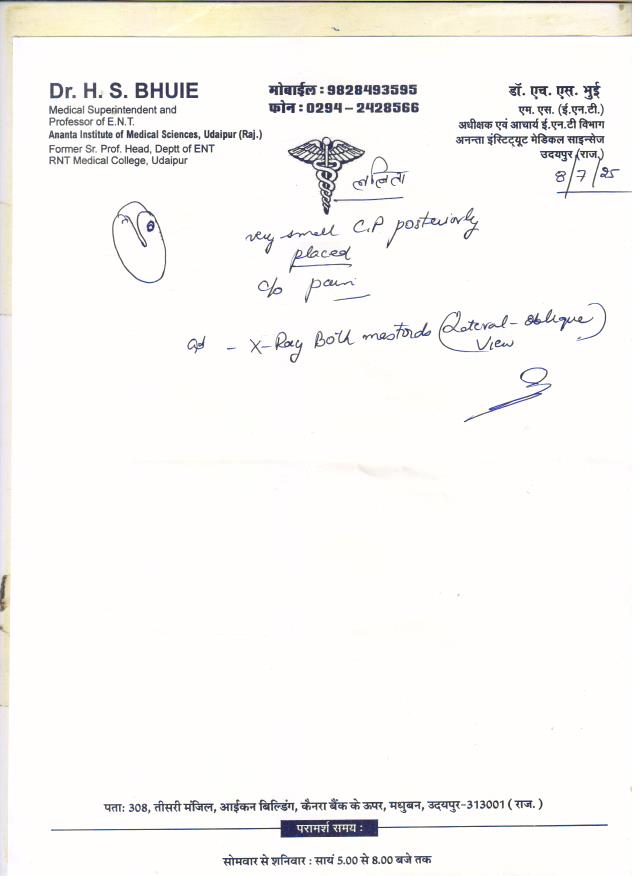 Dr. H. S. BHUIE
Medical Superintendent and
Professor of E.N.T.
Ananta Institute of Medical Sciences, Udaipur (Raj.)
Former Sr. Prof. Head, Deptt of ENT
RNT Medical College, Udaipur
मोबाईल : 9828493595
फोन : 0294 – 2428566
डॉ. एच. एस. भुई
एम. एस. (ई.एन.टी.)
अधीक्षक एवं आचार्य ई.एन.टी विभाग
अनन्ता इंस्टिट्यूट मेडिकल साइन्सेज
उदयपुर (राज.)
8/7/25
ललिता
very small C.P posteriorly
placed
c/o pain
- X-Ray Both mastoids (Lateral-oblique
View)
पताः 308, तीसरी मंजिल, आईकन बिल्डिंग, कैनरा बैंक के ऊपर, मधुबन, उदयपुर-313001 ( राज. )
परामर्श समय :
सोमवार से शनिवार : सायं 5.00 से 8.00 बजे तक